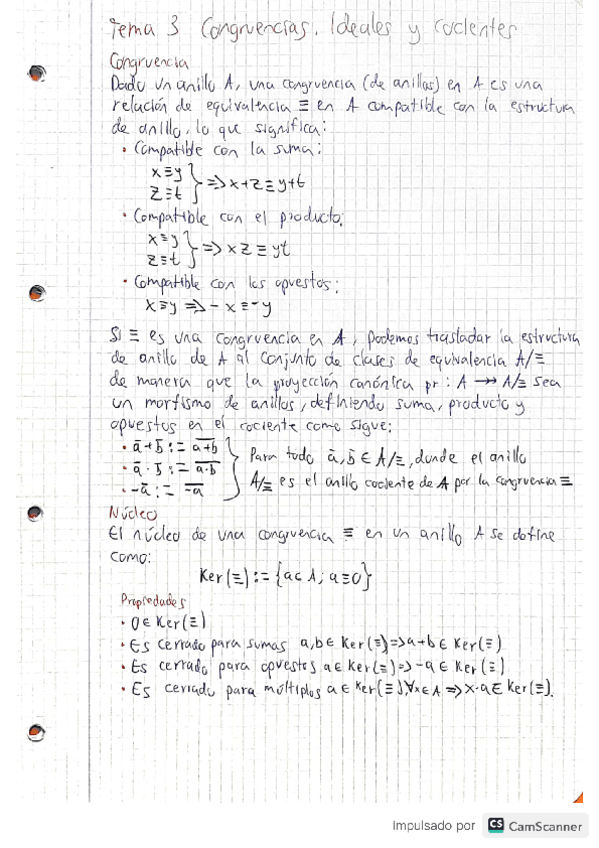 Tema 3 Congruencias, Ideales y cocientes
Congruencia
Dado un anillo A, una congruencia (de anillos) en A es una
relación de equivalencia ≡ en A compatible con la estructura
de anillo, lo que significa:
• Compatible con la suma:
x≡y
z≡t } => x+z≡y+t
• Compatible con el producto:
x≡y
z≡t } => xz≡yt
• Compatible con los opuestos:
x≡y => -x≡-y
Si ≡ es una congruencia en A, podemos trasladar la estructura
de anillo de A al conjunto de clases de equivalencia A/≡
de manera que la proyección canónica pr: A ↠ A/≡ sea
un morfismo de anillos, definiendo suma, producto y
opuestos en el cociente como sigue:
• ā+b̄ := \overline{a+b}
• ā·b̄ := \overline{a·b} } Para todo ā,b̄ ∈ A/≡, donde el anillo
• -ā := \overline{-a} A/≡ es el anillo cociente de A por la congruencia ≡
Núcleo
El núcleo de una congruencia ≡ en un anillo A se define
como:
Ker(≡) := {a∈A; a≡0}
Propiedades
• 0∈Ker(≡)
• Es cerrado para sumas a,b∈Ker(≡)=>a+b∈Ker(≡)
• Es cerrado para opuestos a∈Ker(≡)=>-a∈Ker(≡)
• Es cerrado para múltiplos a∈Ker(≡),∀x∈A => x·a∈Ker(≡).
Impulsado por CS CamScanner